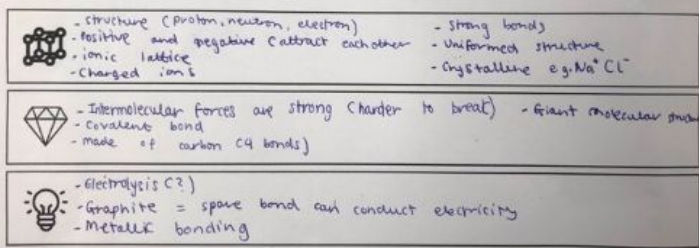 - structure (proton, neutron, electron)
- Positive and negative (attract each other
- ionic lattice
- Charged ions
- Strong bonds
- Uniformed structure
- Crystalline e.g. Na⁺ Cl⁻
- Intermolecular forces are strong (harder to break) - Giant molecular
- Covalent bond
- made of carbon (4 bonds)
- Electrolysis (?)
- Graphite = spare bond can conduct electricity
- Metallic bonding